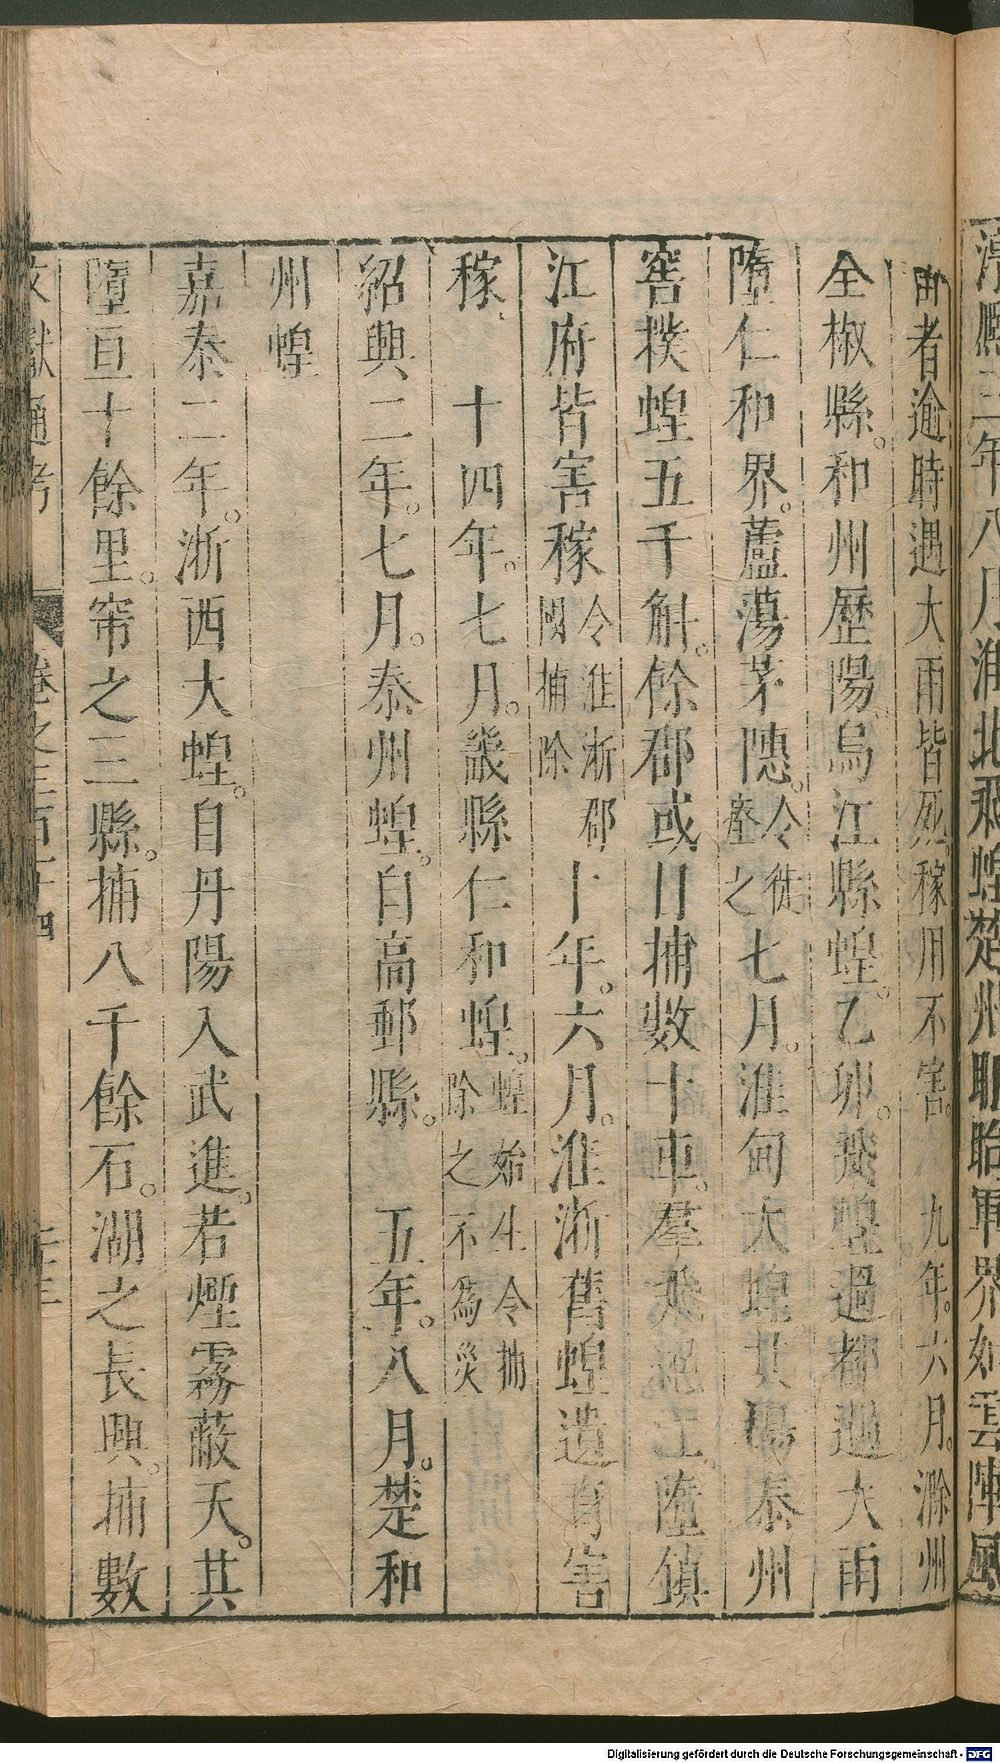 淳熙三年八月淮北飛蝗楚州盱眙軍界如雲陣風
由者逾時遇大雨皆死稼用不害。九年。六月。滁州
全椒縣。和州歷陽。烏江縣蝗。乙卯。飛蝗過都遇大雨
墮仁和界。蘆蕩茅隱。令徙瘞之七月。淮甸大蝗其揚泰州
窖撲蝗五千斛。餘郡或日捕數十車。羣飛絕江。墮鎮
江府皆害稼令淮浙郡國捕除十年。六月。淮浙舊蝗遺育害
稼。十四年。七月。畿縣仁和蝗。蝗始生令捕除之不為災
紹興二年。七月。泰州蝗。自高郵縣。五年。八月。楚和
州蝗
嘉泰二年。浙西大蝗。自丹陽入武進。若煙霧蔽天。其
墮亘十餘里。常之三縣。捕八千餘石。湖之長興。捕數
文獻通考 卷之三百十四
Digitalisierung gefördert durch die Deutsche Forschungsgemeinschaft - DFG